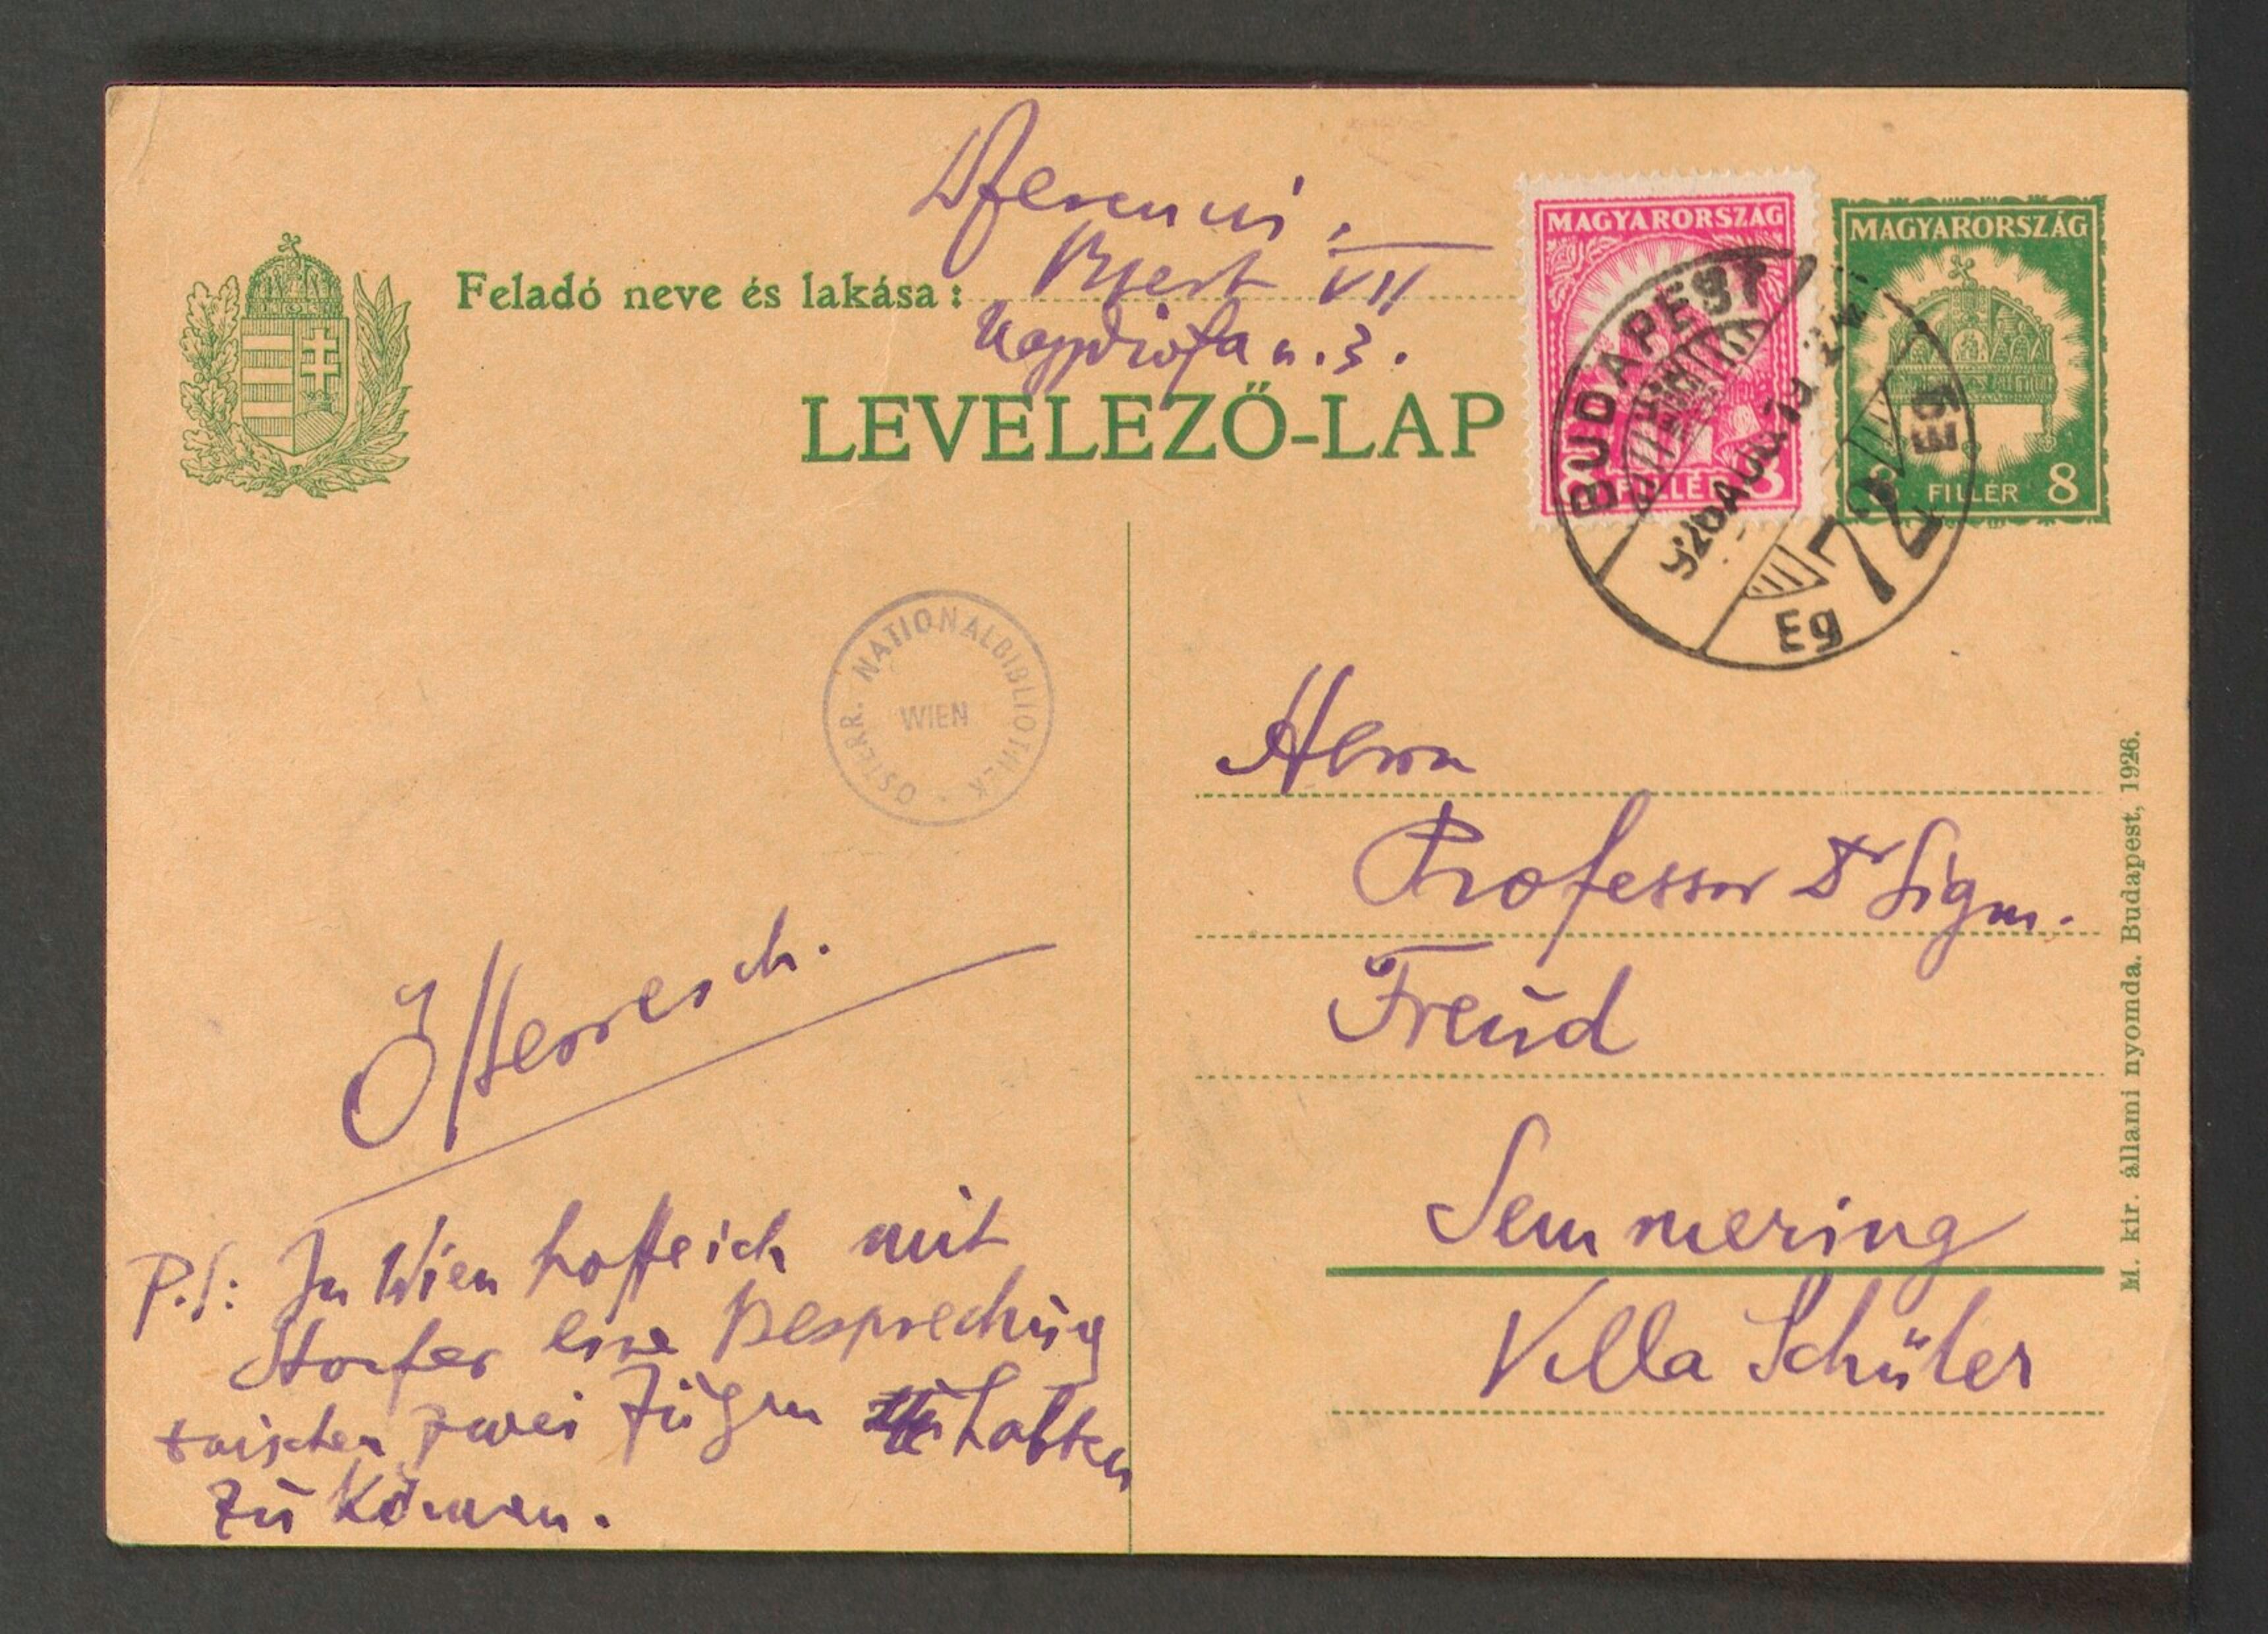 Dr Ferenczi.
Bpest VII
Feladó neve és lakása:
Nagydiófa u. 3.
LEVELEZŐ-LAP
MAGYARORSZÁG
FILLÉR
MAGYARORSZÁG
8 FILLÉR 8
BUDAPEST
72
Eg
ÖSTERR. NATIONALBIBLIOTHEK
WIEN
Herrn
Professor Dr Sigm.
Freud
Semmering
Villa Schüler
Österreich.
P.S: In Wien hoffe ich mit
Storfer eine Besprechung
zwischen zwei Zügen halten
zu können.
M. kir. állami nyomda. Budapest, 1926.